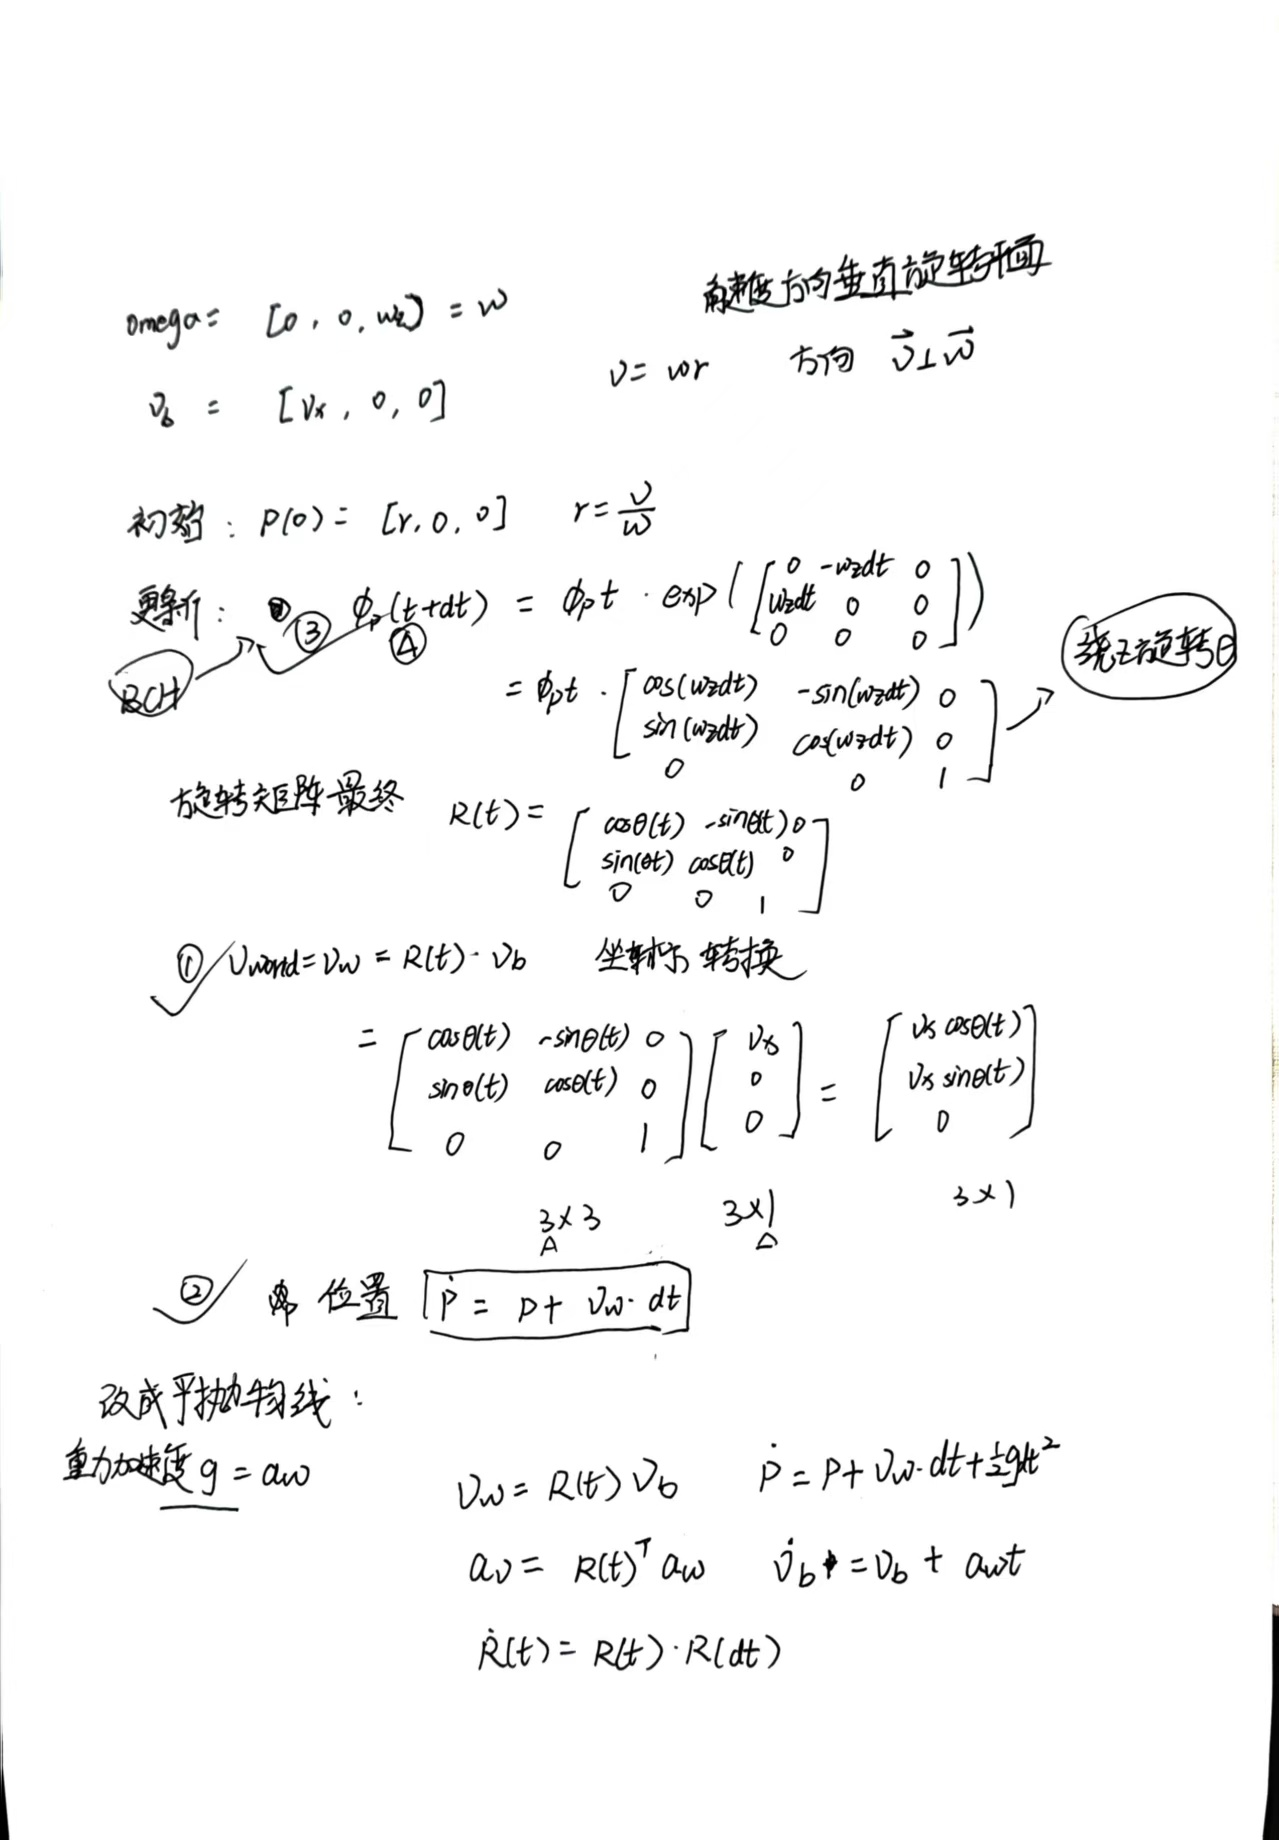 角速度方向垂直旋转平面
omega = [0, 0, wz] = w
v = wr 方向 v⃗⊥w⃗
v_b = [vx, 0, 0]
初始: p(0) = [r, 0, 0] r = v/w
更新: ③ ϕ_p(t+dt) = ϕ_p t · exp([0 -wzdt 0
wzdt 0 0
0 0 0])
④
BCH
绕Z旋转θ
= ϕ_p t · [cos(wzdt) -sin(wzdt) 0
sin(wzdt) cos(wzdt) 0
0 0 1]
旋转矩阵最终 R(t) = [cosθ(t) -sinθ(t) 0
sin(θt) cosθ(t) 0
0 0 1]
① v_world = v_w = R(t) · v_b 坐标 转换
= [cosθ(t) -sinθ(t) 0
sinθ(t) cosθ(t) 0
0 0 1] [vx
0
0] = [vx cosθ(t)
vx sinθ(t)
0]
3×3 3×1 3×1
② 位置 ṗ = p + v_w · dt
改成平抛物线:
重力加速度 g = aw
v_w = R(t) v_b ṗ = p + v_w · dt + ½gdt²
a_v = R(t)ᵀ aw v̇_b = v_b + awt
Ṙ(t) = R(t) · R(dt)